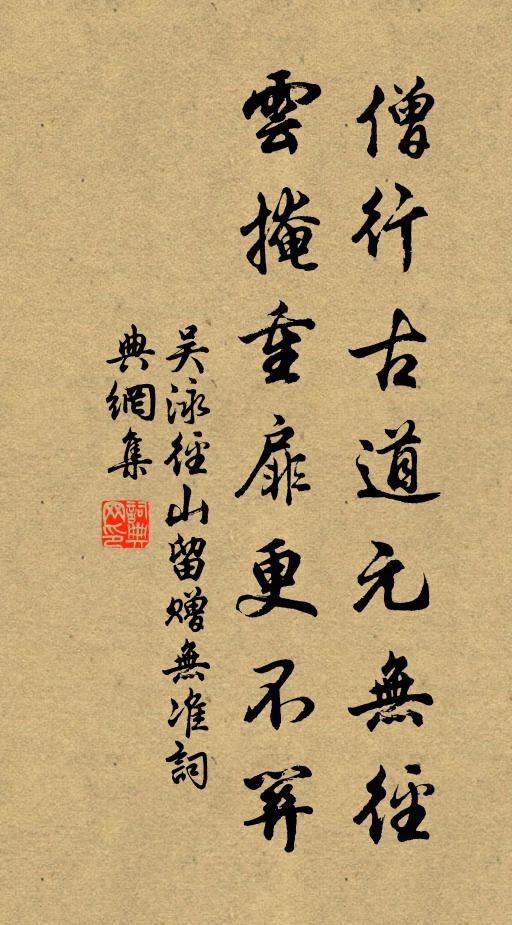 僧行古道元無徑
雲掩重扉更不開
吳泳徑山留贈無准詞
典網集
詞典
网印